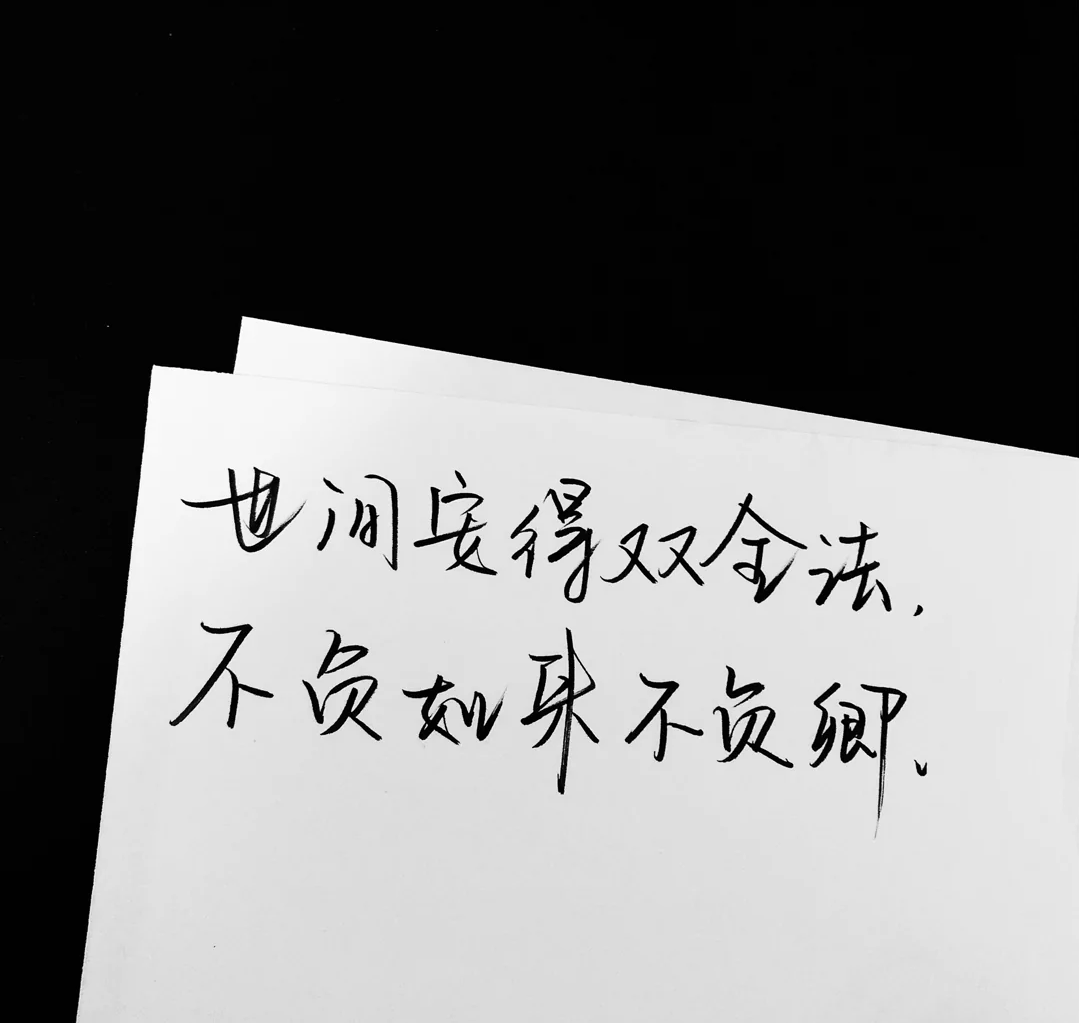 世间安得双全法,
不负如来不负卿.